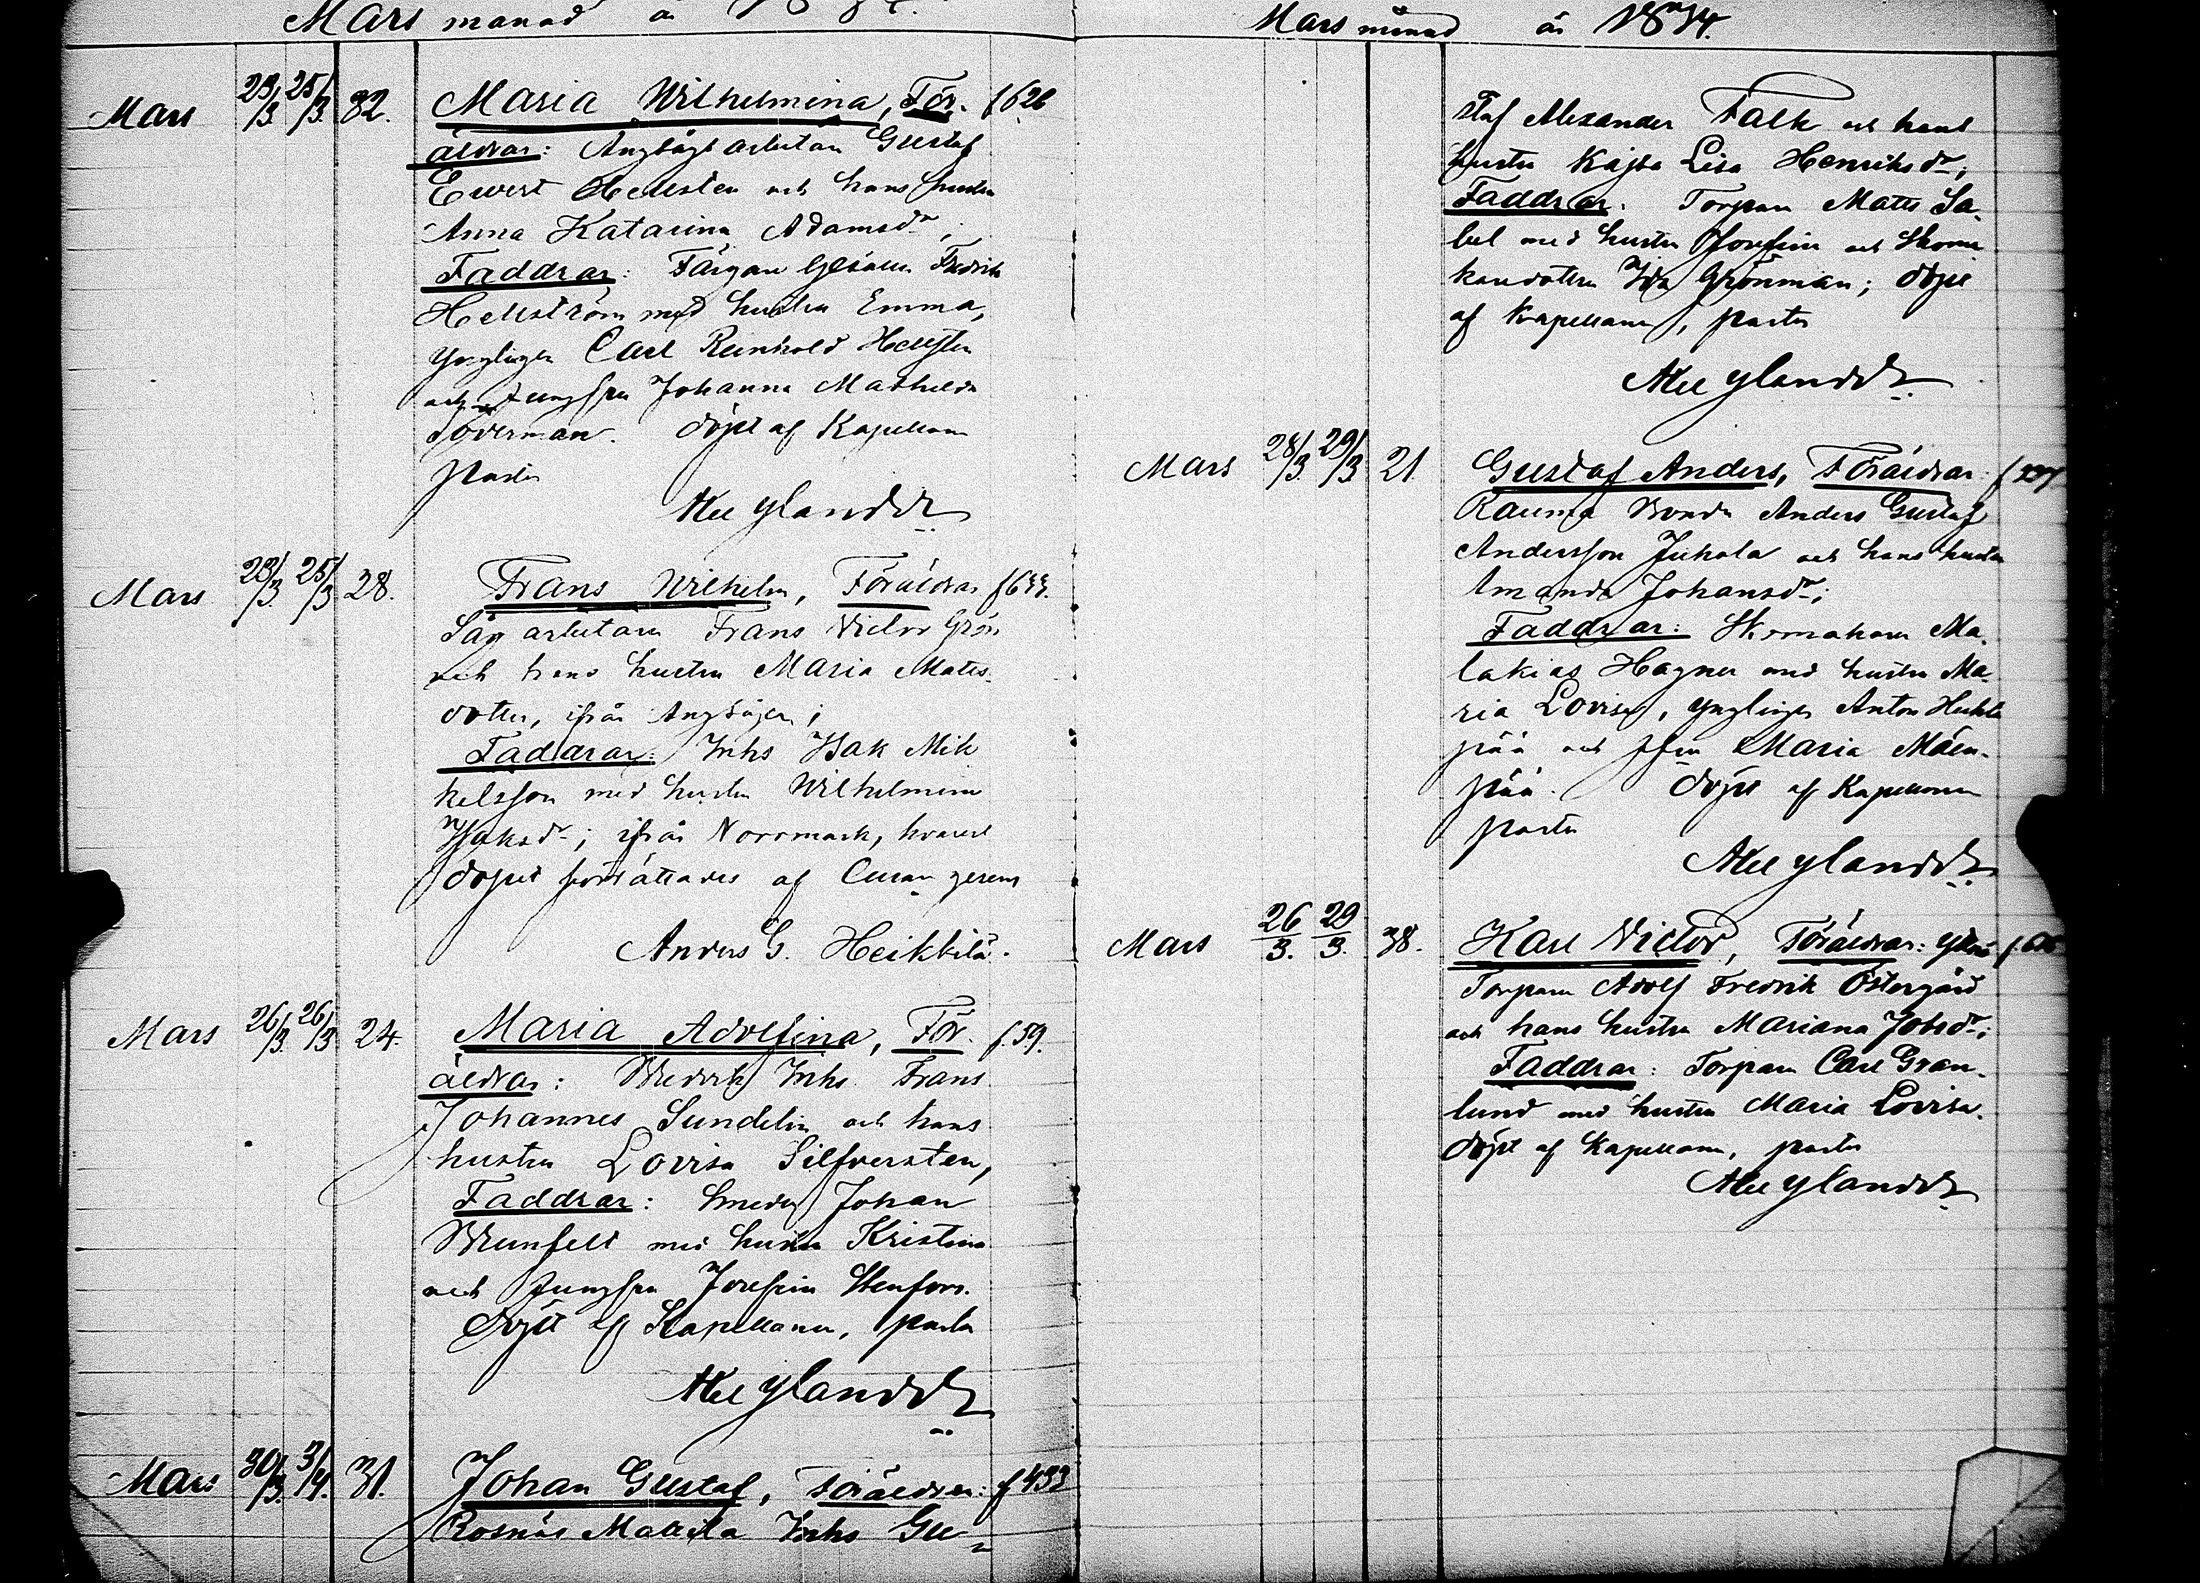 Mars månad år 18
Mars 23/3. 25/3. 32. Maria Wilhelmina, För- f 626
äldrar: Ångsågsarbetaren Gustaf
Ewert Hellsten och hans hustru
Anna Katarina Adamsdr;
Faddrar: Färgare Gesällen Fredrik
Hellström med hustru Emma,
Ynglingen Carl Reinhold Hellsten
och Jungfru Johanna Mathilda
Söderman. Döpt af Kapellanen
pastor
Mylander
Mars 23/3. 25/3 28. Frans Wilhelm, Föräldrar f 633.
Sågarbetaren Frans Victor Grön
och hans hustru Maria Matts-
dotter, ifrån Ångsågen;
Faddrar: Inhs Isak Mik
kelsson med hustru Wilhelmina
Isaksdr; ifrån Norrmark, hvarest
dopet förrättades af Curam gerens
Anders G. Heikkilä.
Mars 26/3. 26/3 24. Maria Adolfina, För- f. 59.
äldrar: Inhs Frans
Johannes Sundelin och hans
hustru Lovisa Silfversten,
Faddrar: Smeden Johan
med hustru Kristina
och Jungfru Josefina Stenfors.
Döpt af Kapellanen, pastor
Mylander
Mars 30/3. 3/4. 31. Johan Gustaf, Föräldrar: f 433
Rosnäs Mattila Inhs Gu-
Mars månad år 1874.
staf Alexander Falk och hans
hustru Kajsa Lisa Henriksdr;
Faddrar: Torparen Matts Sa-
bel med hustru Josefina och Skoma
karedottren Ida Grönman; döpt
af Kapellanen, pastor
Mylander
Mars 28/3. 29/3 21. Gustaf Anders, Föräldrar: f
Rauma Bonden Anders Gustaf
Andersson Juhola och hans hustru
Amanda Johansdr;
Faddrar: Skomakaren Ma-
lakias Hagner med hustru Ma-
ria Lovisa, ynglingen Anton
pää och pfru Maria Mäen-
pää. Döpt af Kapellanen
pastor
Mylander
Mars 26/3. 29/3. 38. Karl Victor, Föräldrar: f.
Torparen Adolf Fredrik Östergård
och hans hustru Mariana Johsdr;
Faddrar: Torparen Carl Gran-
lund med hustru Maria Lovisa.
Döpt af Kapellanen, pastor
Mylander